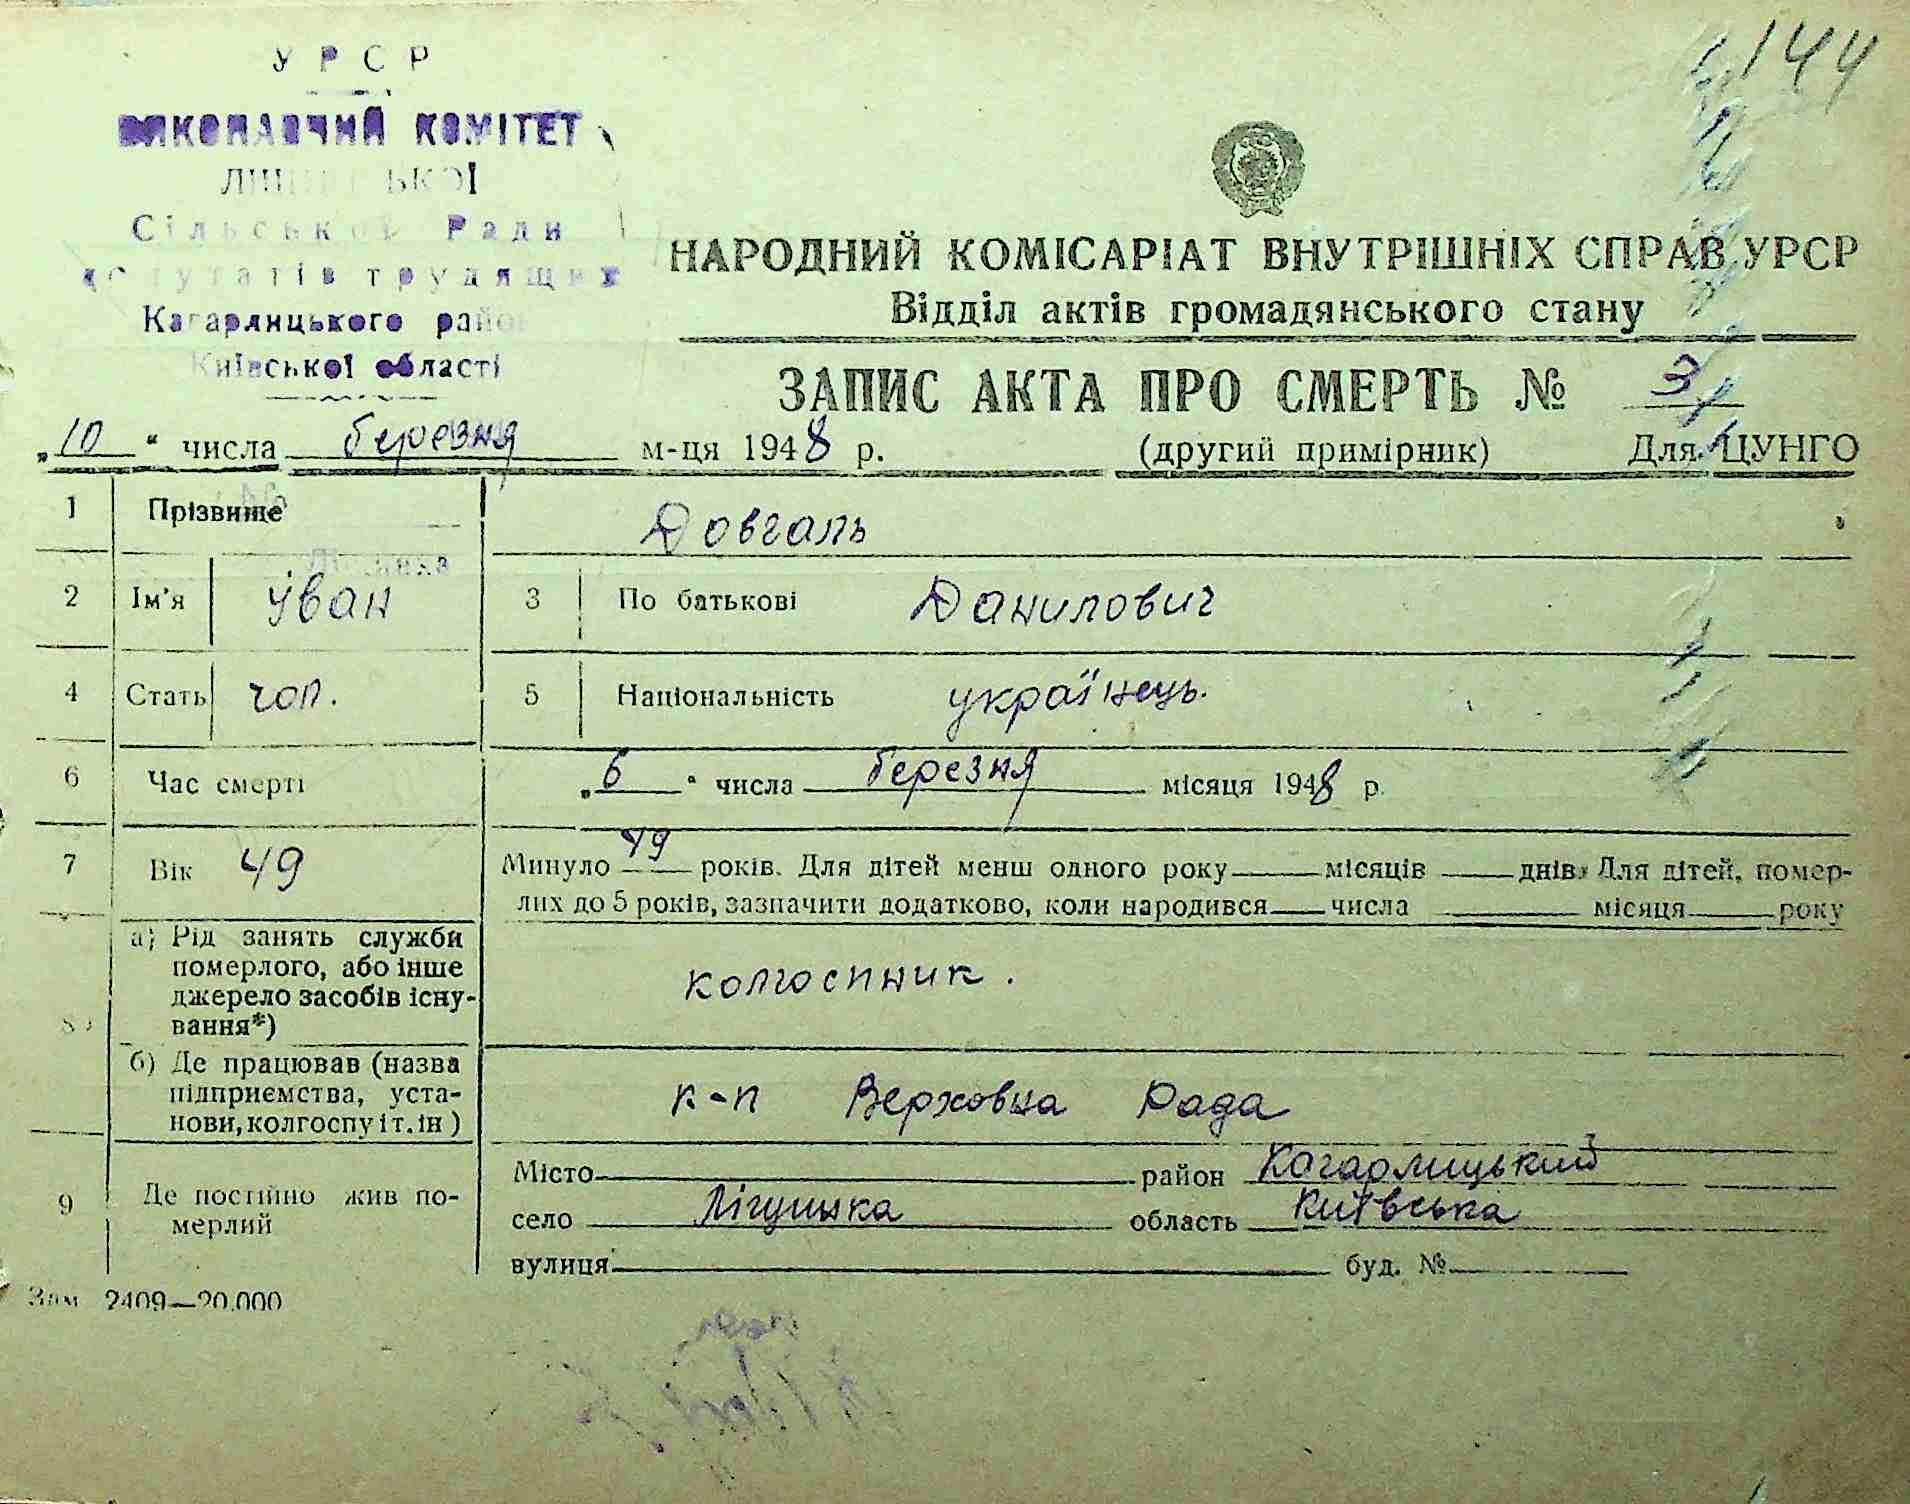 144
У Р С Р
ВИКОНАВЧИЙ КОМІТЕТ
Сільської Ради
депутатів трудящих
Кагарлицького району
Київської області
НАРОДНИЙ КОМІСАРІАТ ВНУТРІШНІХ СПРАВ УРСР
Відділ актів громадянського стану
ЗАПИС АКТА ПРО СМЕРТЬ № 3
„10“ числа березня м-ця 1948 р. (другий примірник) Для ЦУНГО
1 Прізвище Довгаль
2 Ім'я Іван 3 По батькові Данилович
4 Стать чол. 5 Національність українець.
6 Час смерті „6“ числа березня місяця 1948 р.
7 Вік 49 Минуло 49 років. Для дітей менш одного року місяців днів. Для дітей, помер-
лих до 5 років, зазначити додатково, коли народився числа місяця року
8 а) Рід занять служби
померлого, або інше
джерело засобів існу-
вання*)
колгоспник.
б) Де працював (назва
підприємства, уста-
нови, колгоспу і т. ін)
к-п Верховна Рада
9 Де постійно жив по-
мерлий
Місто район Кагарлицький
село область Київська
вулиця буд. №
Зам 2409—20.000